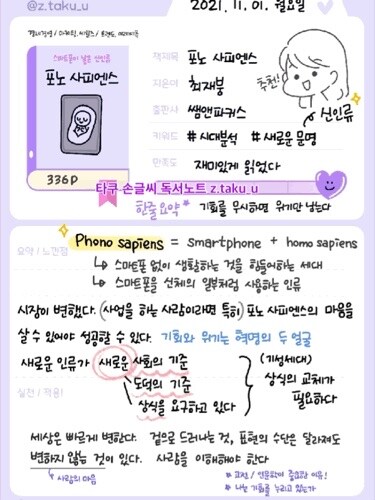 @z.taku_u
2021. 11. 01. 월요일
스마트폰이 낳은 신인류
포노 사피엔스
336P
책제목 포노 사피엔스
지은이 최재붕
출판사 쌤앤파커스
키워드 #시대분석 #새로운 문명
만족도 재미있게 읽었다
추천!
신인류
타쿠 손글씨 독서노트 z.taku_u
한줄요약 * 기회를 무시하면 위기만 남는다
요약 / 느낀점
Phono sapiens = smartphone + homo sapiens
↳ 스마트폰 없이 생활하는 것을 힘들어하는 세대
↳ 스마트폰을 신체의 일부처럼 사용하는 인류
시장이 변했다. (사업을 하는 사람이라면 특히) 포노 사피엔스의 마음을
살 수 있어야 성공할 수 있다. 기회와 위기는 혁명의 두 얼굴
새로운 인류가 새로운 사회의 기준
도덕의 기준
상식을 요구하고 있다
(기성세대)
상식의 교체가
필요하다
실천 / 적용!
세상은 빠르게 변한다. 겉으로 드러나는 것, 표현의 수단은 달라져도
변하지 않는 것이 있다. 사람을 이해해야 한다
↳ 사람의 마음
* 나는 기회를 누리고 있는가